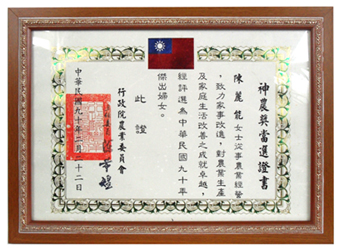 神農獎當選證書
陳麗能女士從事農業經營
，致力家事改進，對農業生產
及家庭生活改善之成就卓越，
經評選為中華民國九十年
傑出婦女。
此證
行政院農業委員會
中華民國九十年二月二十二日